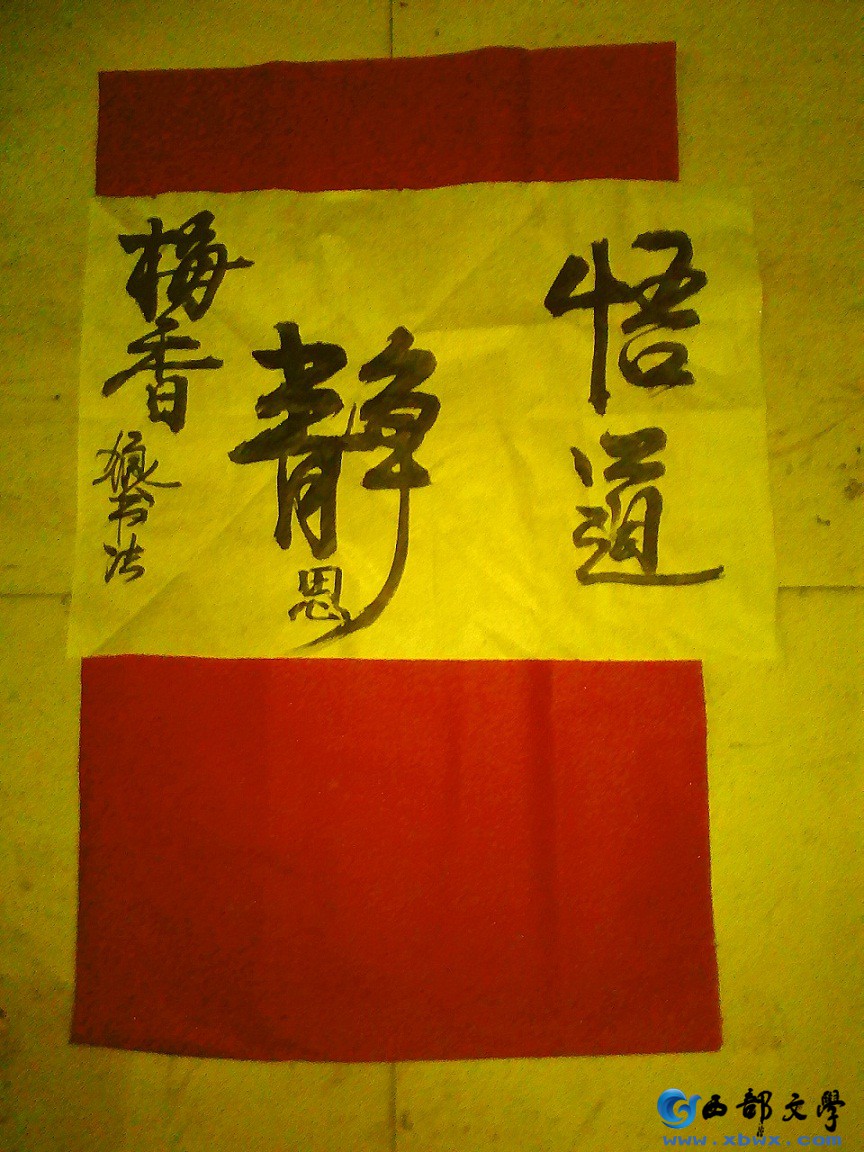 悟道
静思
梅香
书法
西部文學
www.xbwx.com